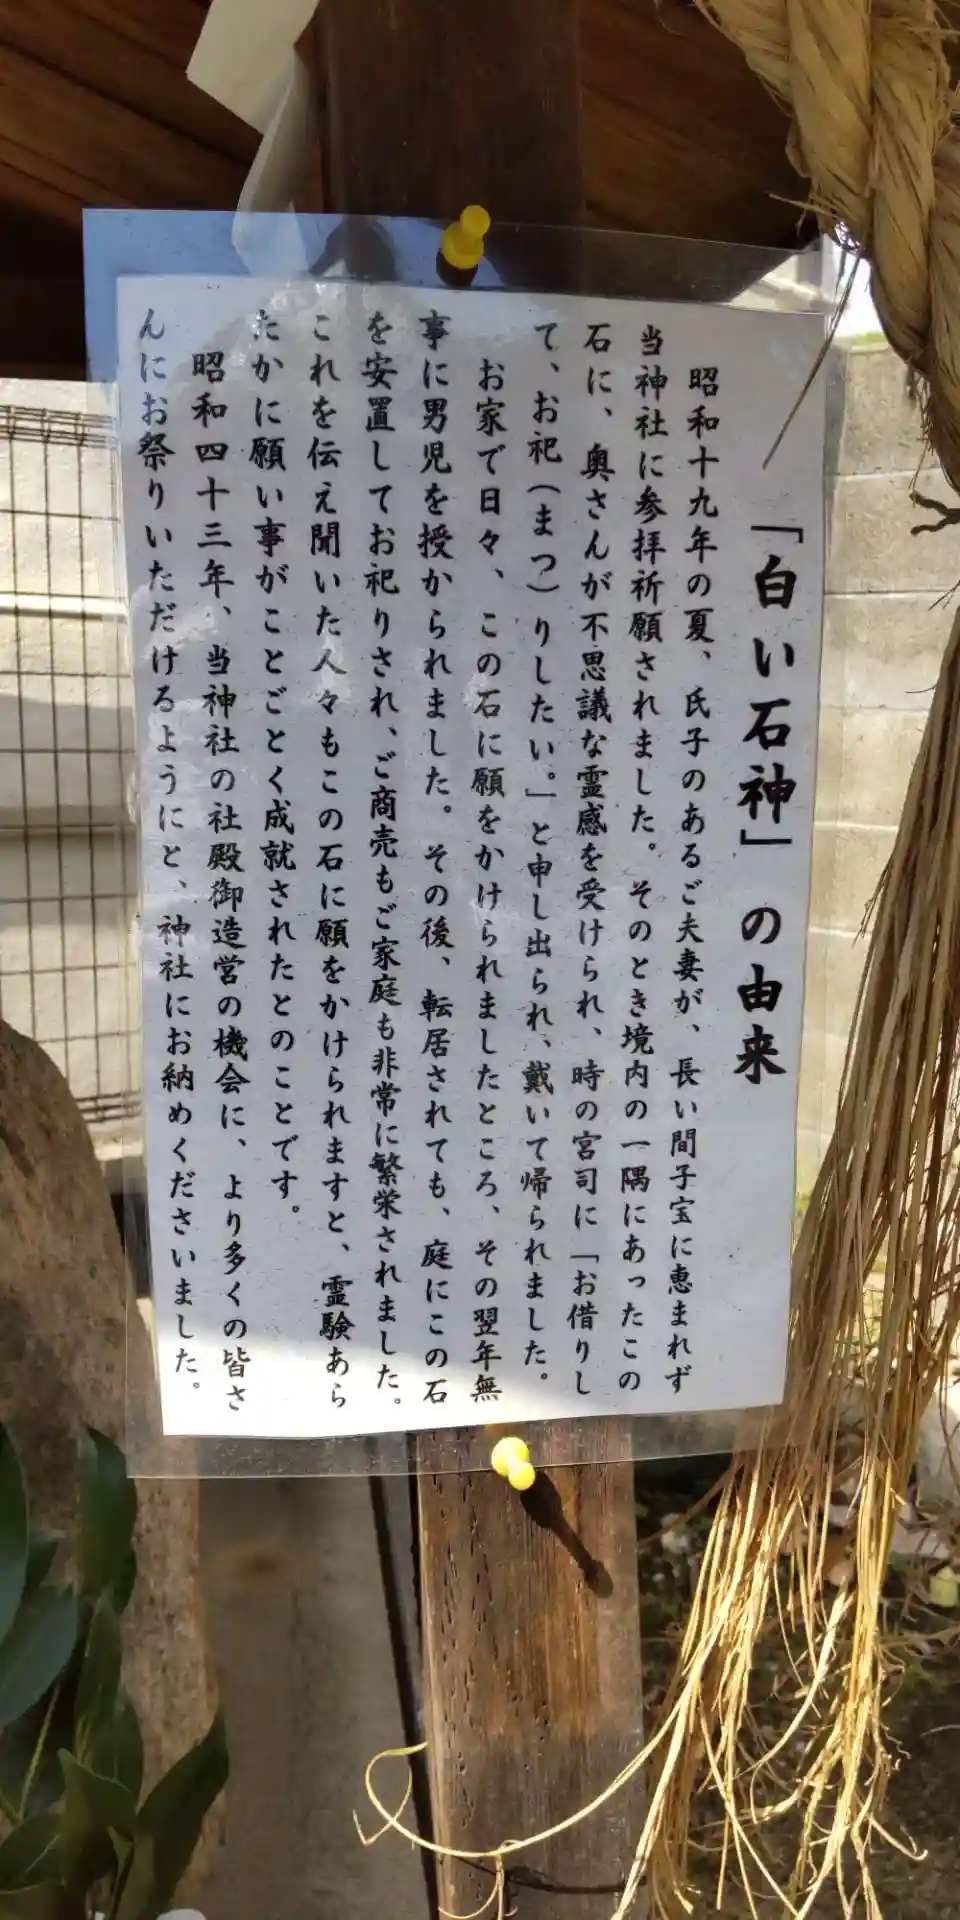 「白い石神」の由来
昭和十九年の夏、氏子のあるご夫妻が、長い間子宝に恵まれず
当神社に参拝祈願されました。そのとき境内の一隅にあったこの
石に、奥さんが不思議な霊感を受けられ、時の宮司に「お借りし
て、お祀(まつ)りしたい。」と申し出られ、戴いて帰られました。
お家で日々、この石に願をかけられましたところ、その翌年無
事に男児を授かられました。その後、転居されても、庭にこの石
を安置してお祀りされ、ご商売もご家庭も非常に繁栄されました。
これを伝え聞いた人々もこの石に願をかけられますと、霊験あら
たかに願い事がことごとく成就されたとのことです。
昭和四十三年、当神社の社殿御造営の機会に、より多くの皆さ
んにお祭りいただけるようにと、神社にお納めくださいました。